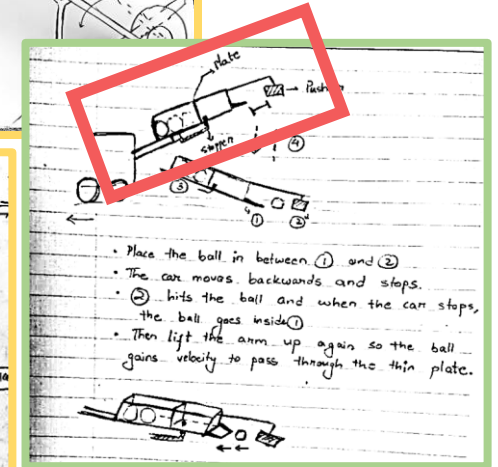 plate
stopper
④
③
①
②
• Place the ball in between ① and ②
• The car moves backwards and stops.
• ② hits the ball and when the car stops,
the ball goes inside ①
• Then lift the arm up again so the ball
gains velocity to pass through the thin plate.